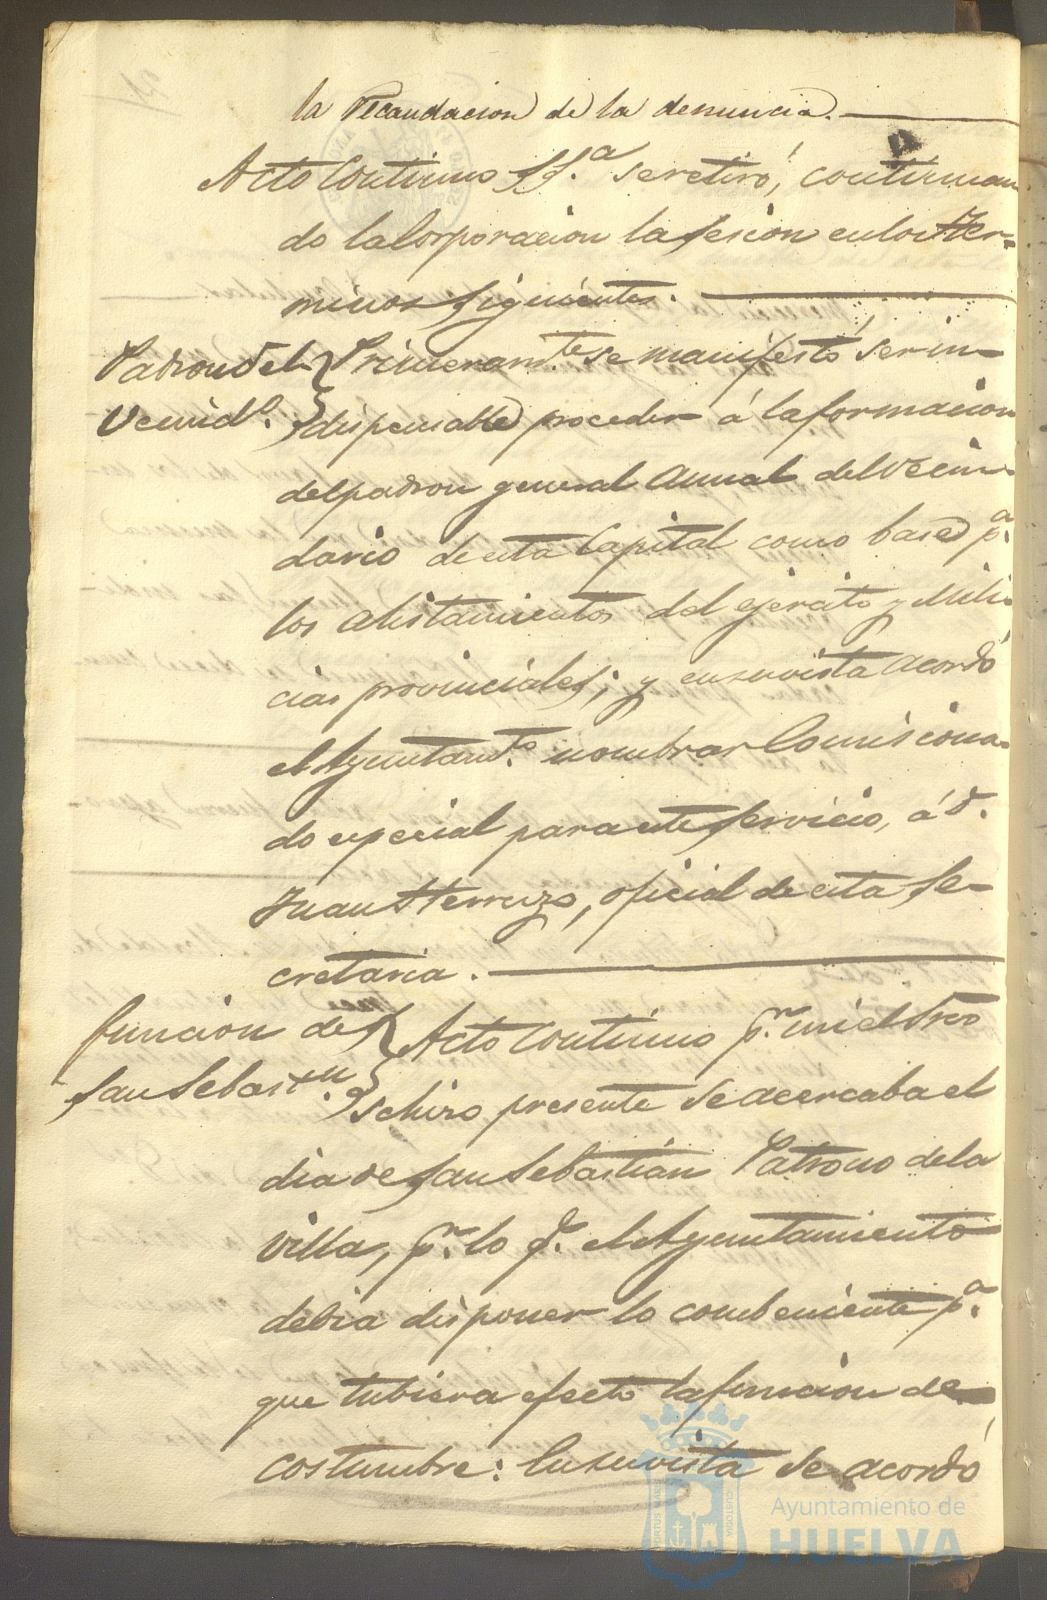 la recaudacion de la denuncia.
Acto continuo S.S.ª se retiró, continuan
do la Corporacion la sesion en los ter-
minos siguientes.
Padron del
Vecind.º
Primeram.te se manifestó ser in-
dispensable proceder á la formacion
del padron general anual del vecin-
dario de esta Capital como base p.ª
los alistamientos del ejército y Mili-
cias provinciales; y en su vista acordó
el Ayuntam.to nombrar Comisiona-
do especial para este servicio, á D.
Juan Herrezo, oficial de esta Se-
cretaria.
funcion de
San Sebast.n
Acto continuo p.r mi el Srio
se hizo presente se acercaba el
dia de San Sebastián Patrono de la
Villa, p.r lo q.e el Ayuntamiento
debia disponer lo combeniente p.ª
que tubiera efecto la funcion de
costumbre: En su vista se acordó
Ayuntamiento de
HUELVA